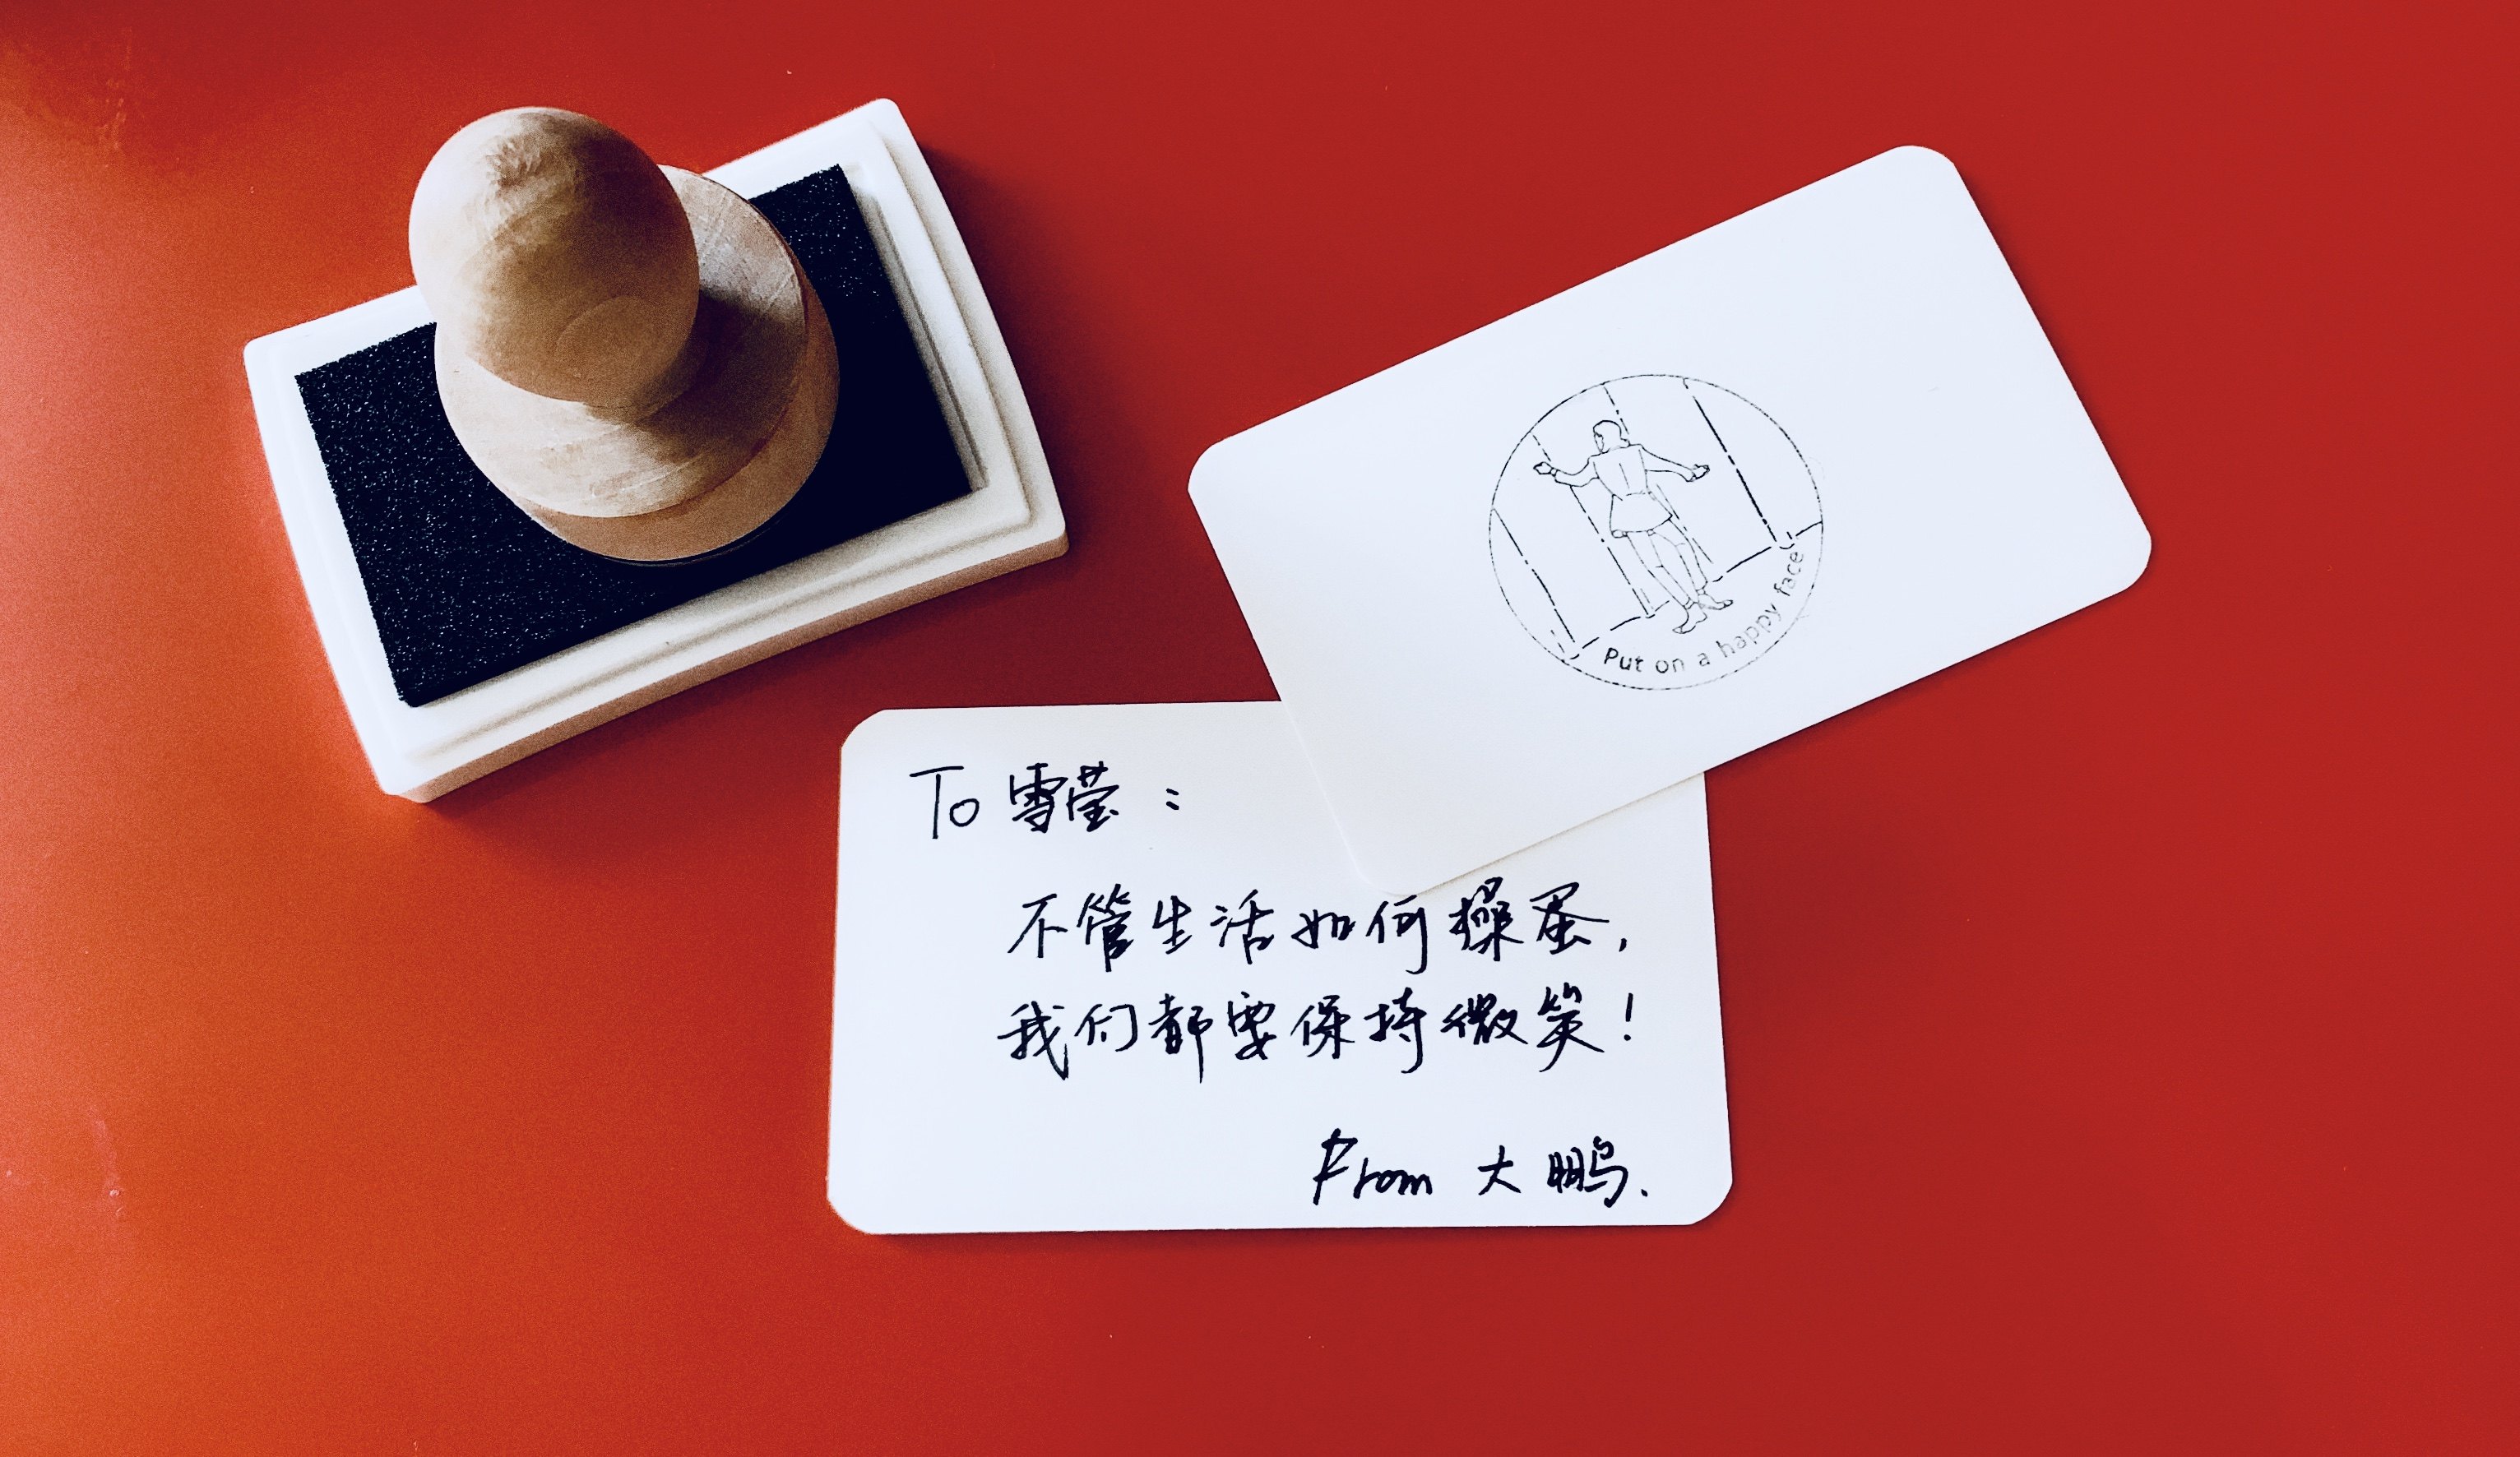 Put on a happy face
To 雪莹：
不管生活如何操蛋，
我们都要保持微笑！
From 大鹏.